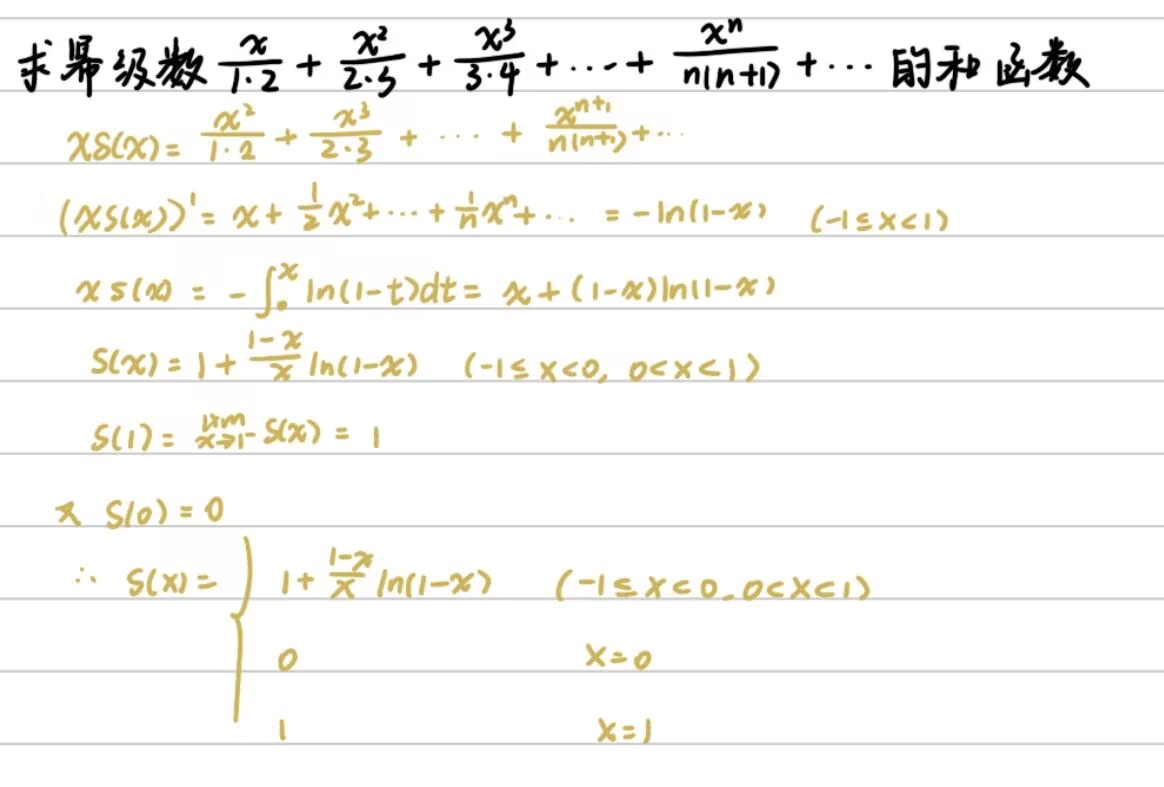 求幂级数 x/(1·2) + x²/(2·3) + x³/(3·4) + ··· + xⁿ/(n(n+1)) + ··· 的和函数
xS(x) = x²/(1·2) + x³/(2·3) + ··· + xⁿ⁺¹/(n(n+1)) + ···
(xS(x))' = x + 1/2 x² + ··· + 1/n xⁿ + ··· = -ln(1-x) (-1≤x<1)
xS(x) = -∫₀ˣ ln(1-t)dt = x + (1-x)ln(1-x)
S(x) = 1 + (1-x)/x ln(1-x) (-1≤x<0, 0<x<1)
S(1) = lim x→1⁻ S(x) = 1
又 S(0) = 0
∴ S(x) = { 1 + (1-x)/x ln(1-x) (-1≤x<0, 0<x<1)
0 x=0
1 x=1